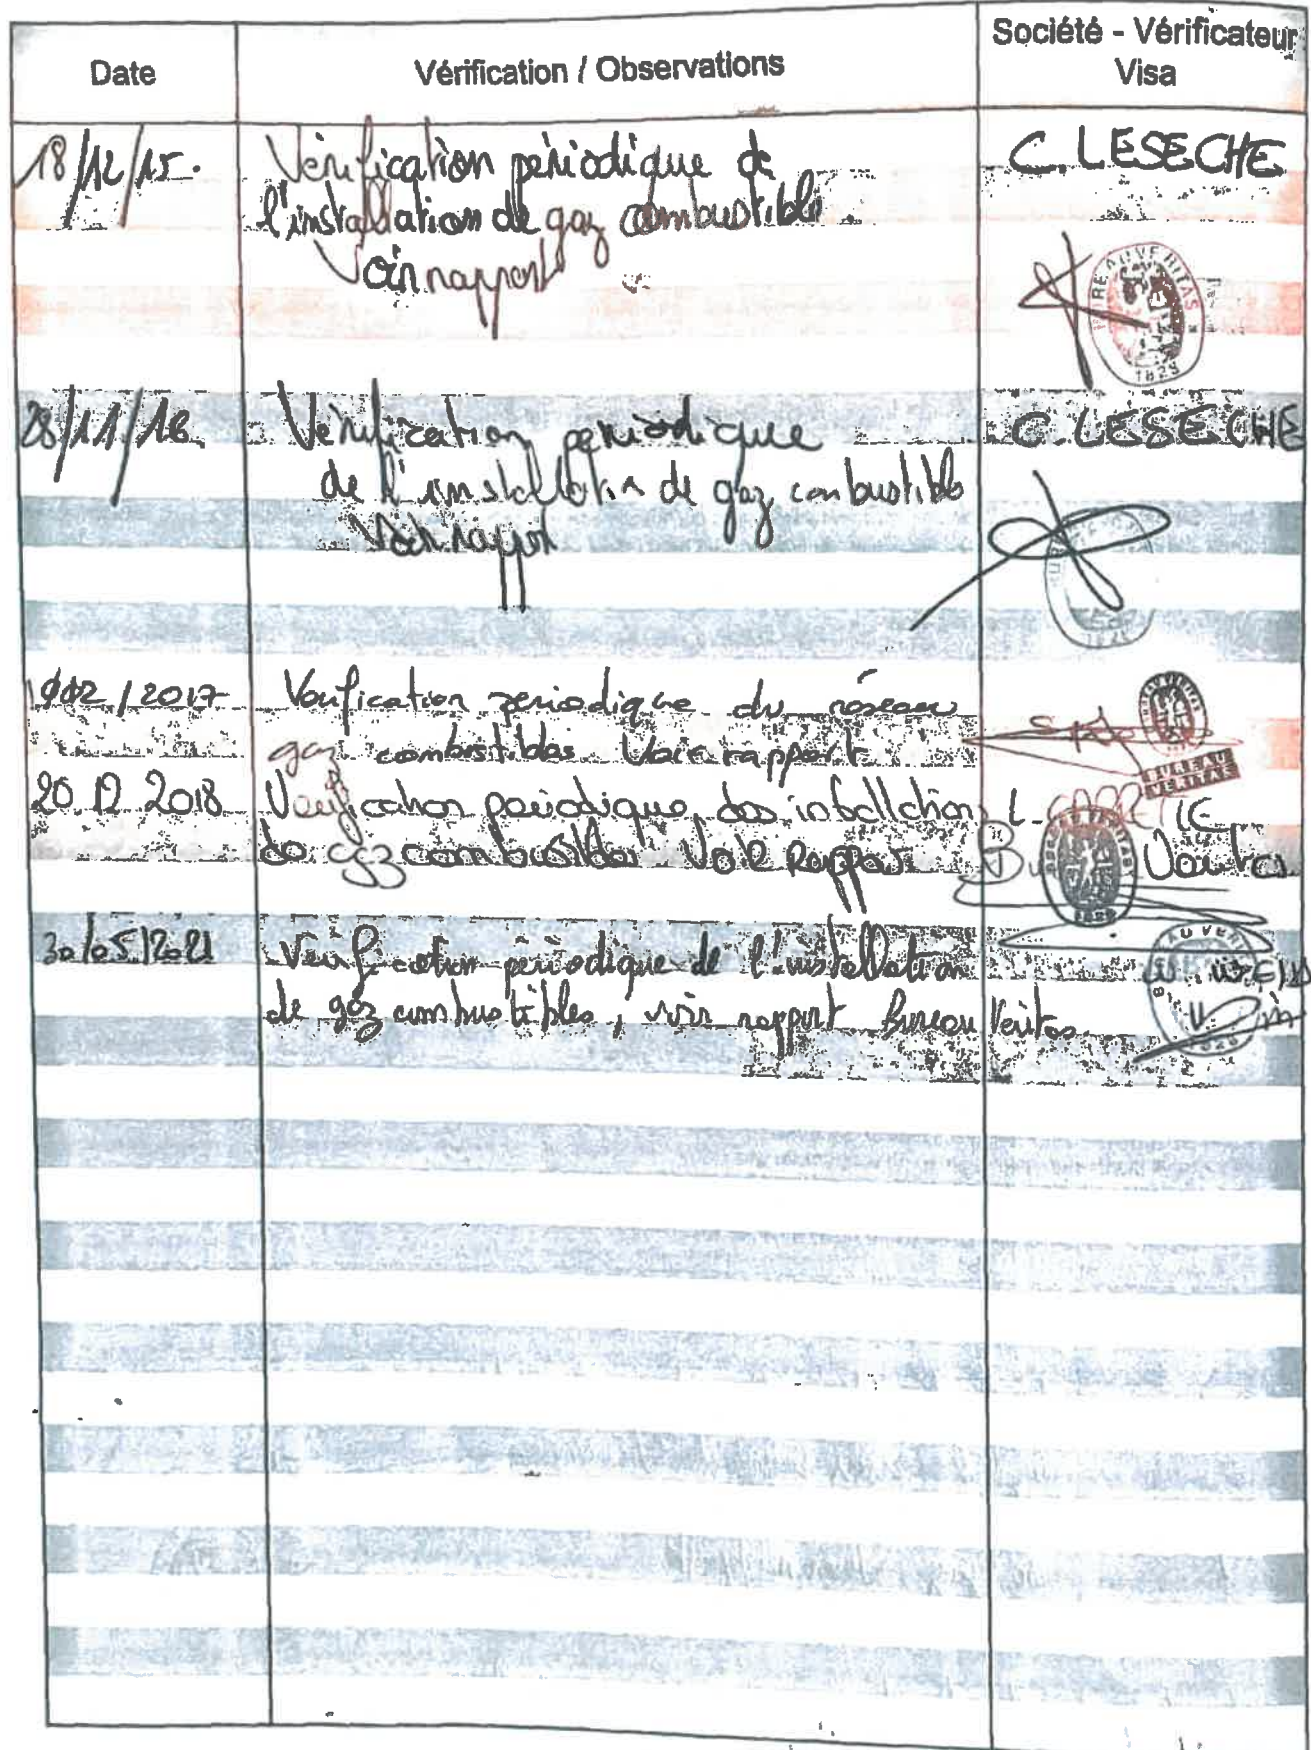 Date Vérification / Observations Société - Vérificateur
Visa
18/12/15. Vérification périodique de C. LESECHE
l'installation de gaz combustible
Voir rapport
BUREAU VERITAS
1828
28/11/16 Vérification périodique C. LESECHE
de l'installation de gaz combustible
Voir rapport
/2017 Verification periodique du réseau
gaz combustibles Voir rapport
BUREAU
VERITAS
20 12 2018 Verification periodique des installation L.
de gaz combustibles Voir Rapport Bureau Veritas
30/05/2021 Verification périodique de l'installation
de gaz combustibles, voir rapport Bureau Veritas